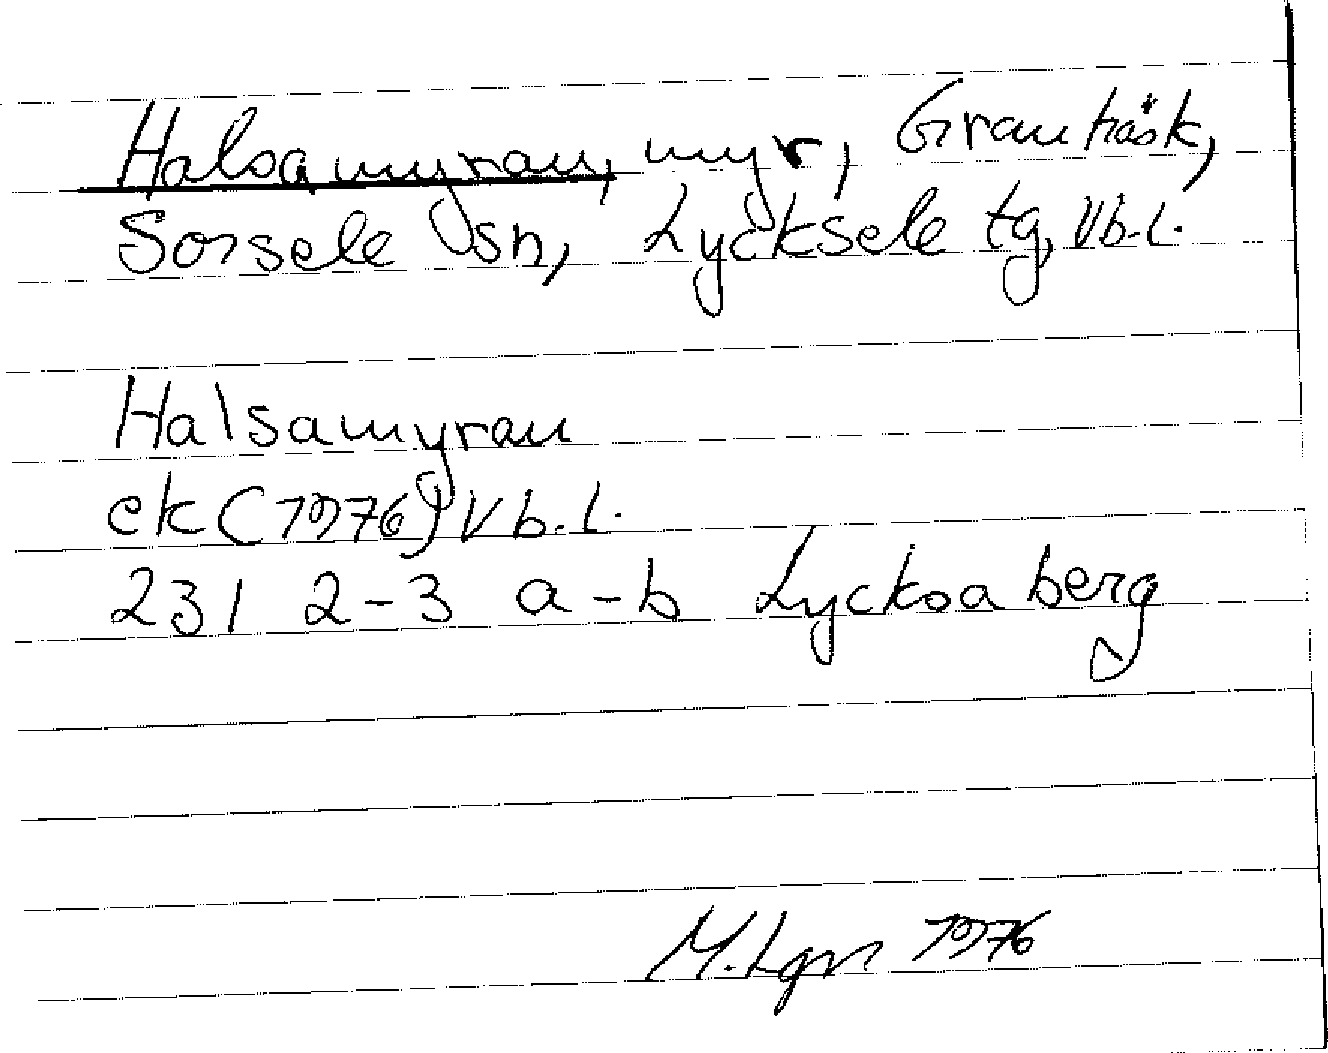 Halsamyran, myr, Granträsk,
Sorsele sn, Lycksele tg, Vb.L.
Halsamyran
ek (1976) Vb.L.
231 2-3 a-b Lycksaberg
M. Lgn 1976